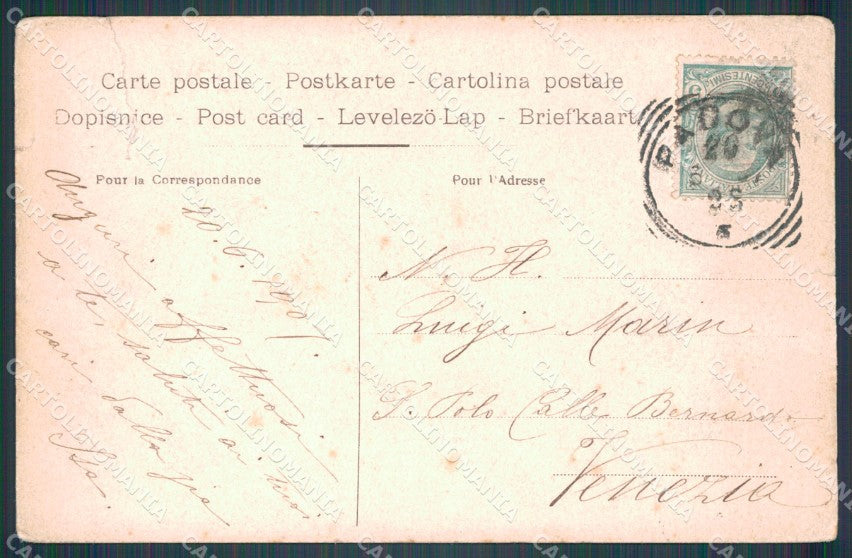 Carte postale - Postkarte - Cartolina postale
Dopisnice - Post card - Levelező Lap - Briefkaart
Pour la Correspondance
Pour l'Adresse
PADOVA
20
20.6.1907
Auguri affettuosi
a te, saluti ai tuoi
cari dalla zia
N. H.
Luigi Marin
S. Polo Calle Bernardo
Venezia
CARTOLINOMANIA